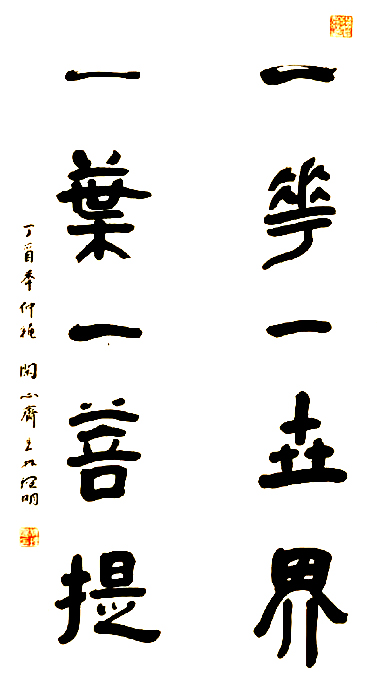 一花一世界
一葉一菩提
丁酉年仲秋 閑心齋主人